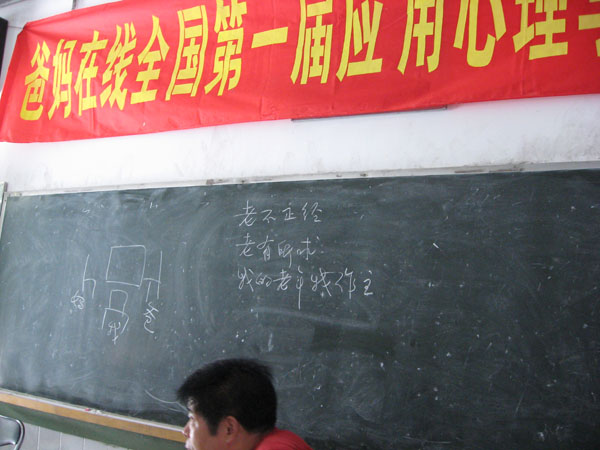 爸妈在线全国第一届应用心理学
老不正经
老有所求
我的老年我作主
妈
我
爸